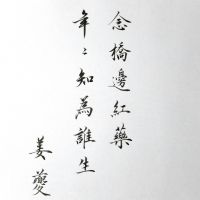 念橋邊紅藥
年〻知為誰生
姜夔